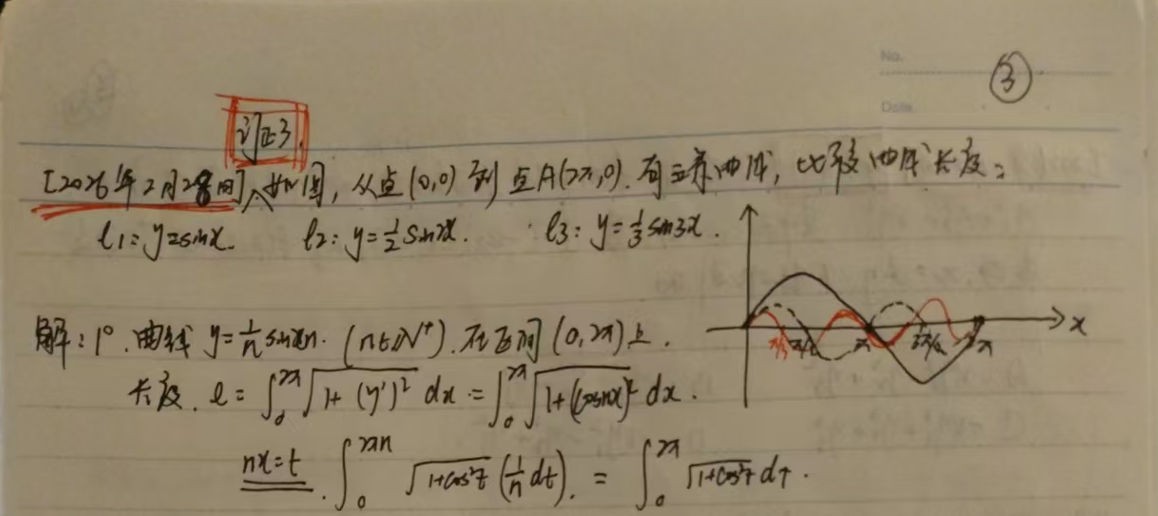 No.
③
Date
习证3.
[2026年2月28日]入如图，从点(0,0)到点A(2π,0).有三条曲线，比较曲线长度：
l1：y=sinx. l2：y=1/2 sin2x. l3：y=1/3 sin3x.
解：1°.曲线 y=1/n sinxn. (n∈N⁺).在区间(0,2π)上.
长度. l=∫₀^{2π} √(1+(y')²) dx = ∫₀^{2π} √(1+(cosnx)²) dx.
nx=t . ∫₀^{2πn} √(1+cos²t) (1/n dt). = ∫₀^{2π} √(1+cos²t) dt.
π/3 π/2 π 3π/2 π
x